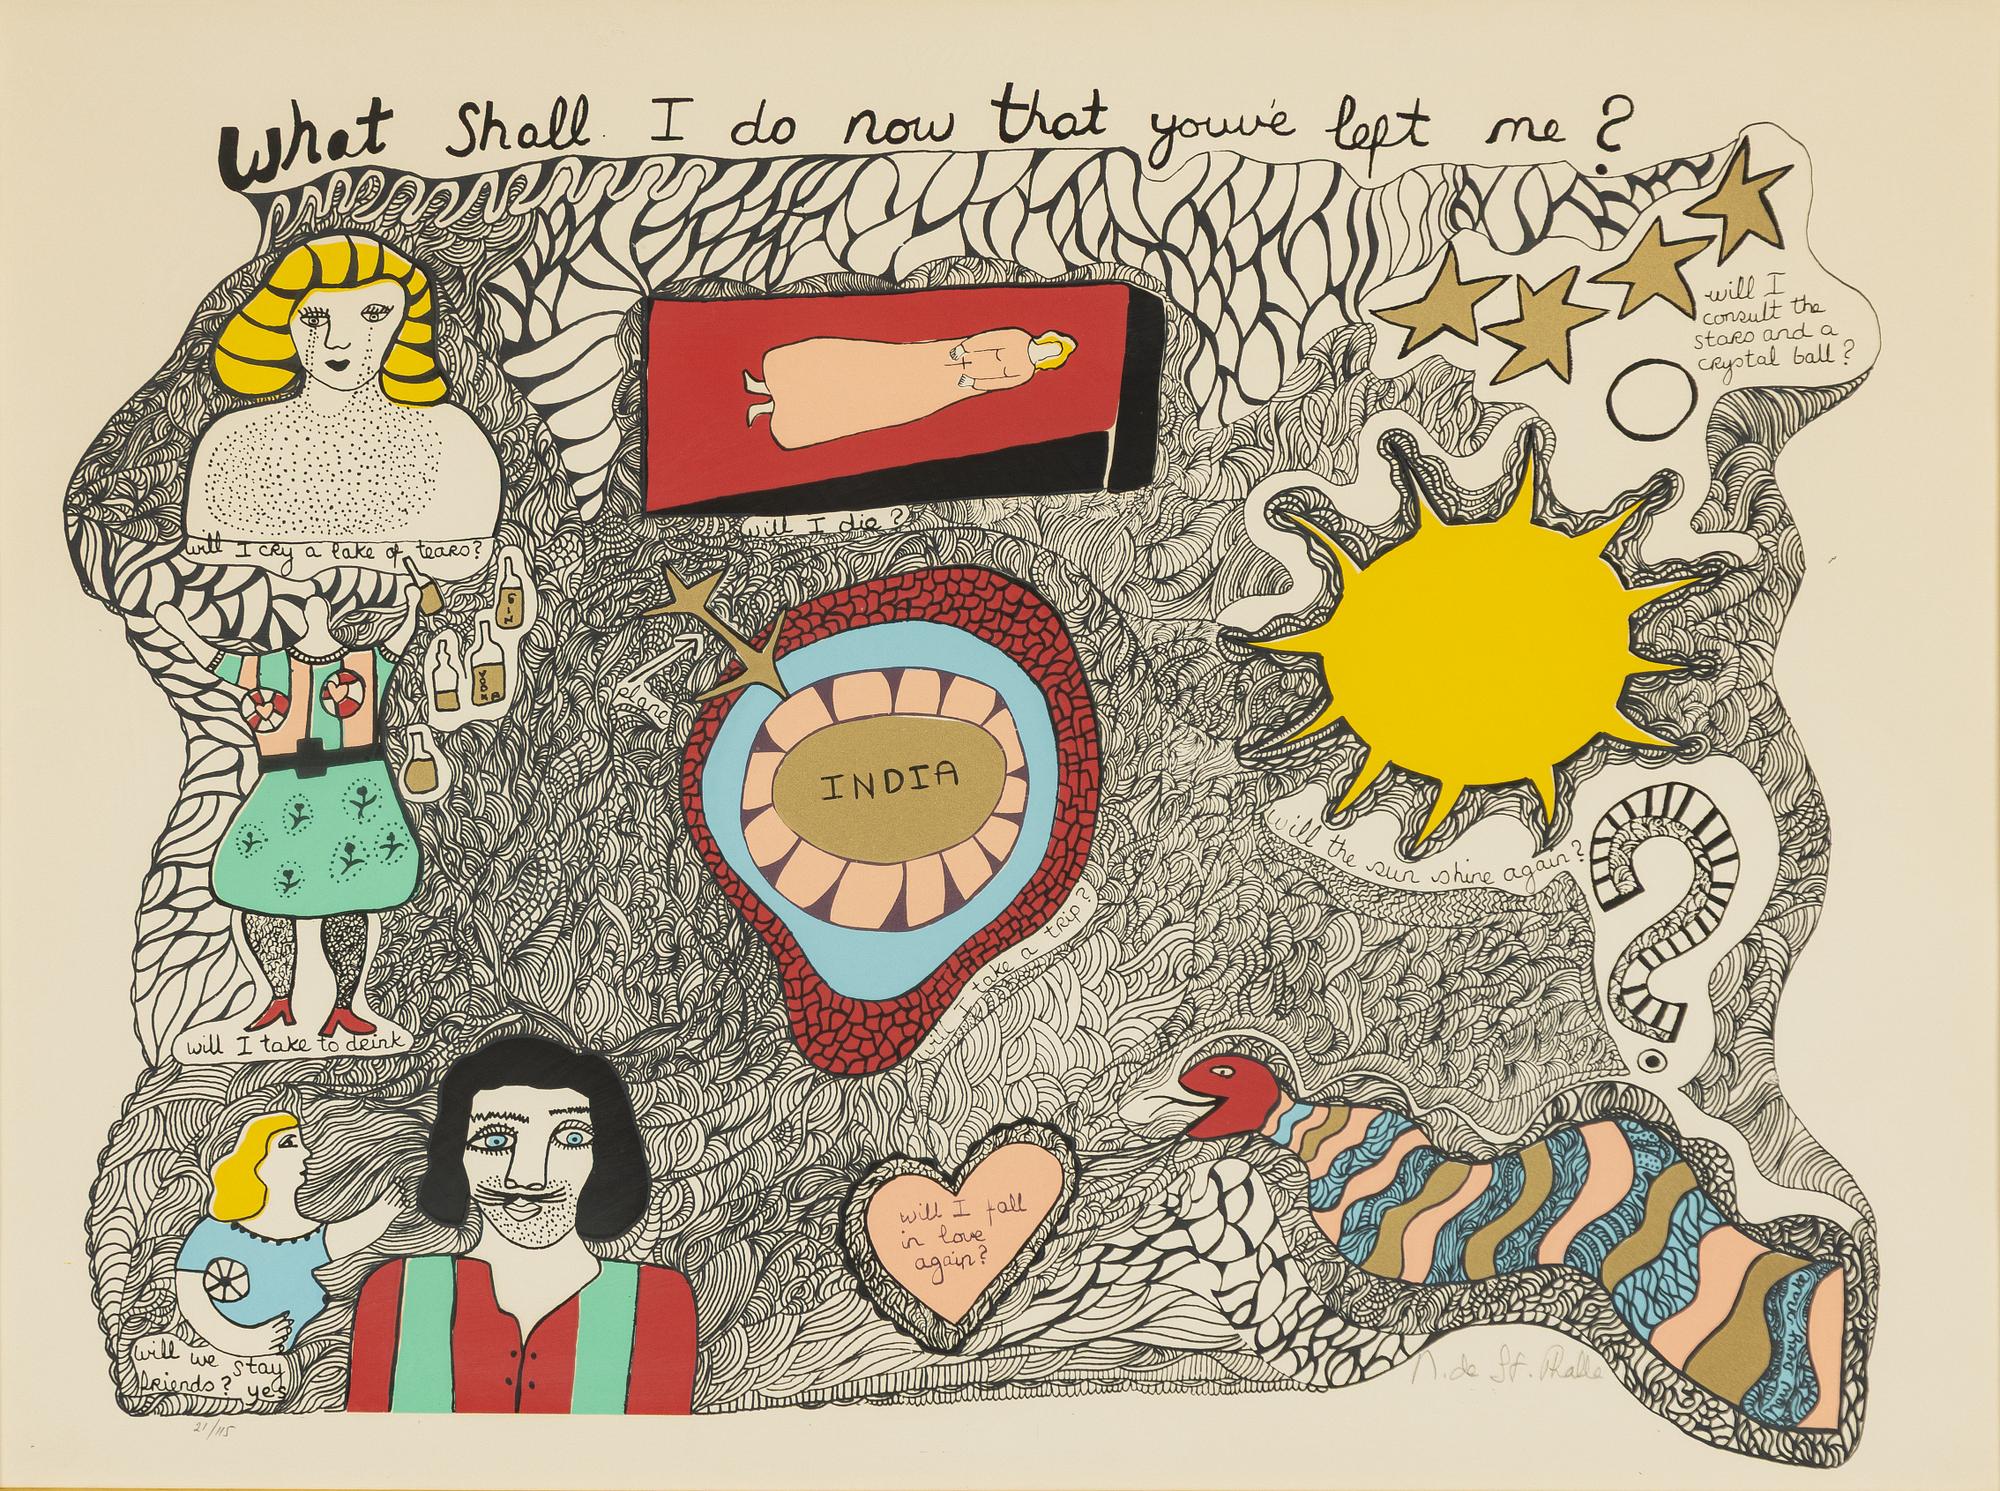 What Shall I do now that youv'e left me?
will I
consult the
stars and a
crystal ball?
will I die?
will I cry a lake of tears?
GIN
VODKA
plane
INDIA
will the sun shine again?
will I take a trip?
will I take to drink
will I fall
in love
again?
will we stay
friends? yes
new sexy snake
N. de St. Phalle
21/115